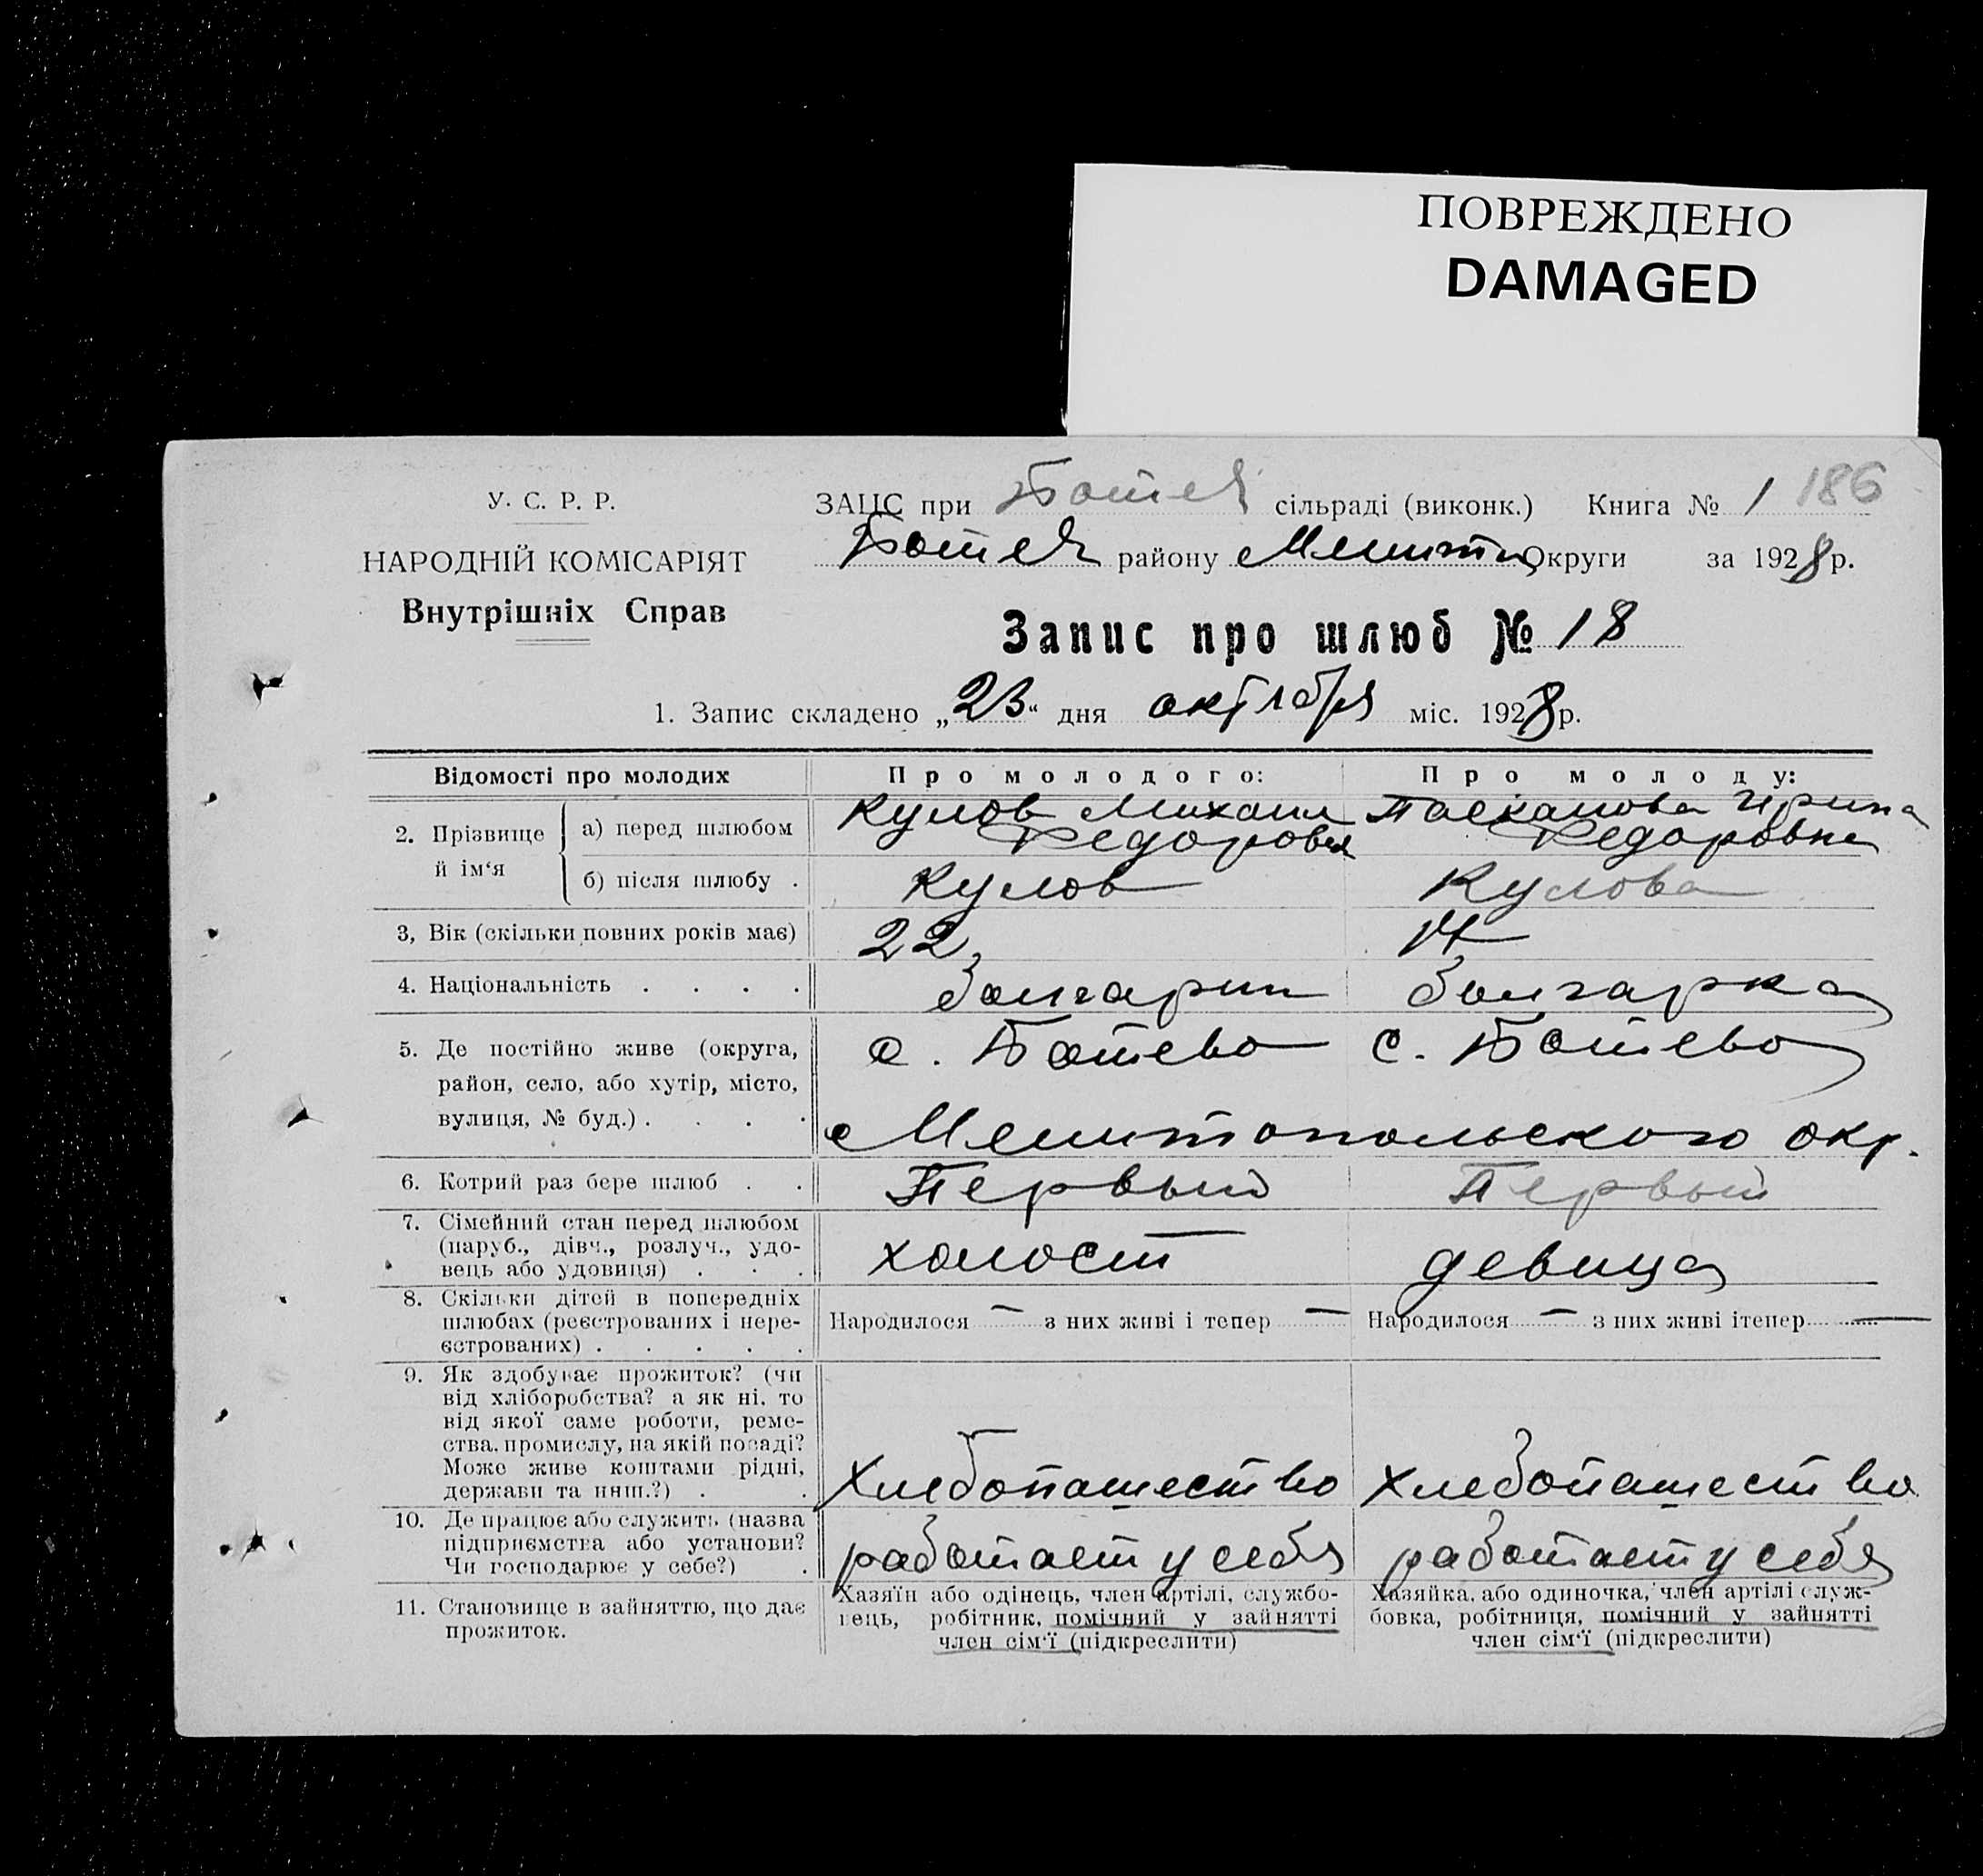 ПОВРЕЖДЕНО
DAMAGED
У. С. Р. Р.
НАРОДНІЙ КОМІСАРІЯТ
Внутрішніх Справ
ЗАЦС при Ботев сільраді (виконк.) Книга № 1 186
Ботев району Мелитоп Округи за 1928 р.
Запис про шлюб № 18
1. Запис складено „23“ дня октября міс. 1928 р.
Відомості про молодих Про молодого: Про молоду:
2. Прізвище й ім‘я
а) перед шлюбом Кулов Михаил Федорович Пасканова Ирина Федоровна
б) після шлюбу . Кулов Кулова
3, Вік (скільки повних років має) 22
4. Національність . . . . болгарин болгарка
5. Де постійно живе (округа, с. Ботево с. Ботево
район, село, або хутір, місто,
вулиця, № буд.) . . . . Мелитопольского окр.
6. Котрий раз бере шлюб . . Первый Первый
7. Сімейний стан перед шлюбом
(паруб., дівч., розлуч., удо-
вець або удовиця) . . . холост девица
8. Скільки дітей в попередніх
шлюбах (реєстрованих і нере-
єстрованих) . . . . .
Народилося — з них живі і тепер — Народилося — з них живі ітепер —
9. Як здобуває прожиток? (чи
від хліборобства? а як ні, то
від якої саме роботи, реме-
ства, промислу, на якій посаді?
Може живе коштами рідні,
держави та инш.?) . . Хлебопашество Хлебопашество
10. Де працює або служить (назва
підприємства або установи?
Чи господарює у себе?) . работает у себя работает у себя
11. Становище в зайняттю, що дає
прожиток.
Хазяїн або одінець, член артілі, службо-
вець, робітник, помічний у зайнятті
член сім‘ї (підкреслити)
Хазяйка, або одиночка, член артілі служ-
бовка, робітниця, помічний у зайнятті
член сім‘ї (підкреслити)